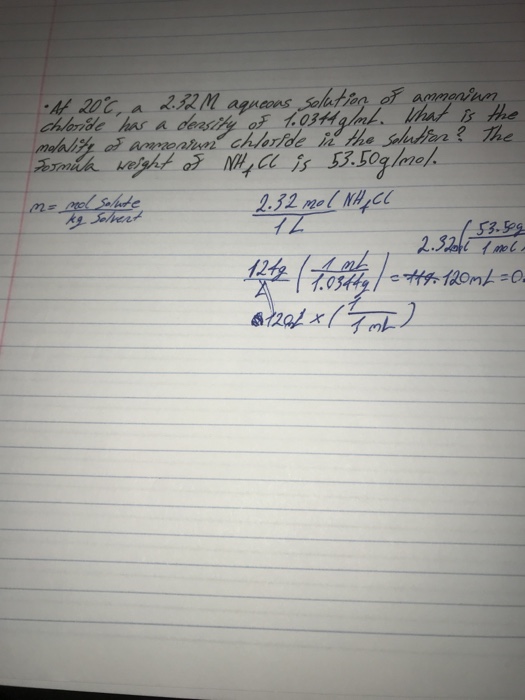 • At 20°C, a 2.32M aqueous solution of ammonium
chloride has a density of 1.0344g/mL. What is the
molality of ammonium chloride in the solution? The
formula weight of NH₄Cl is 53.50g/mol.
m = mol Solute / kg Solvent
2.32 mol NH₄Cl / 1L
2.32 mol (53.50g / 1 mol
124g / L (1 mL / 1.0344g) = 120mL = 0.
120L × (1 / 1 mL)